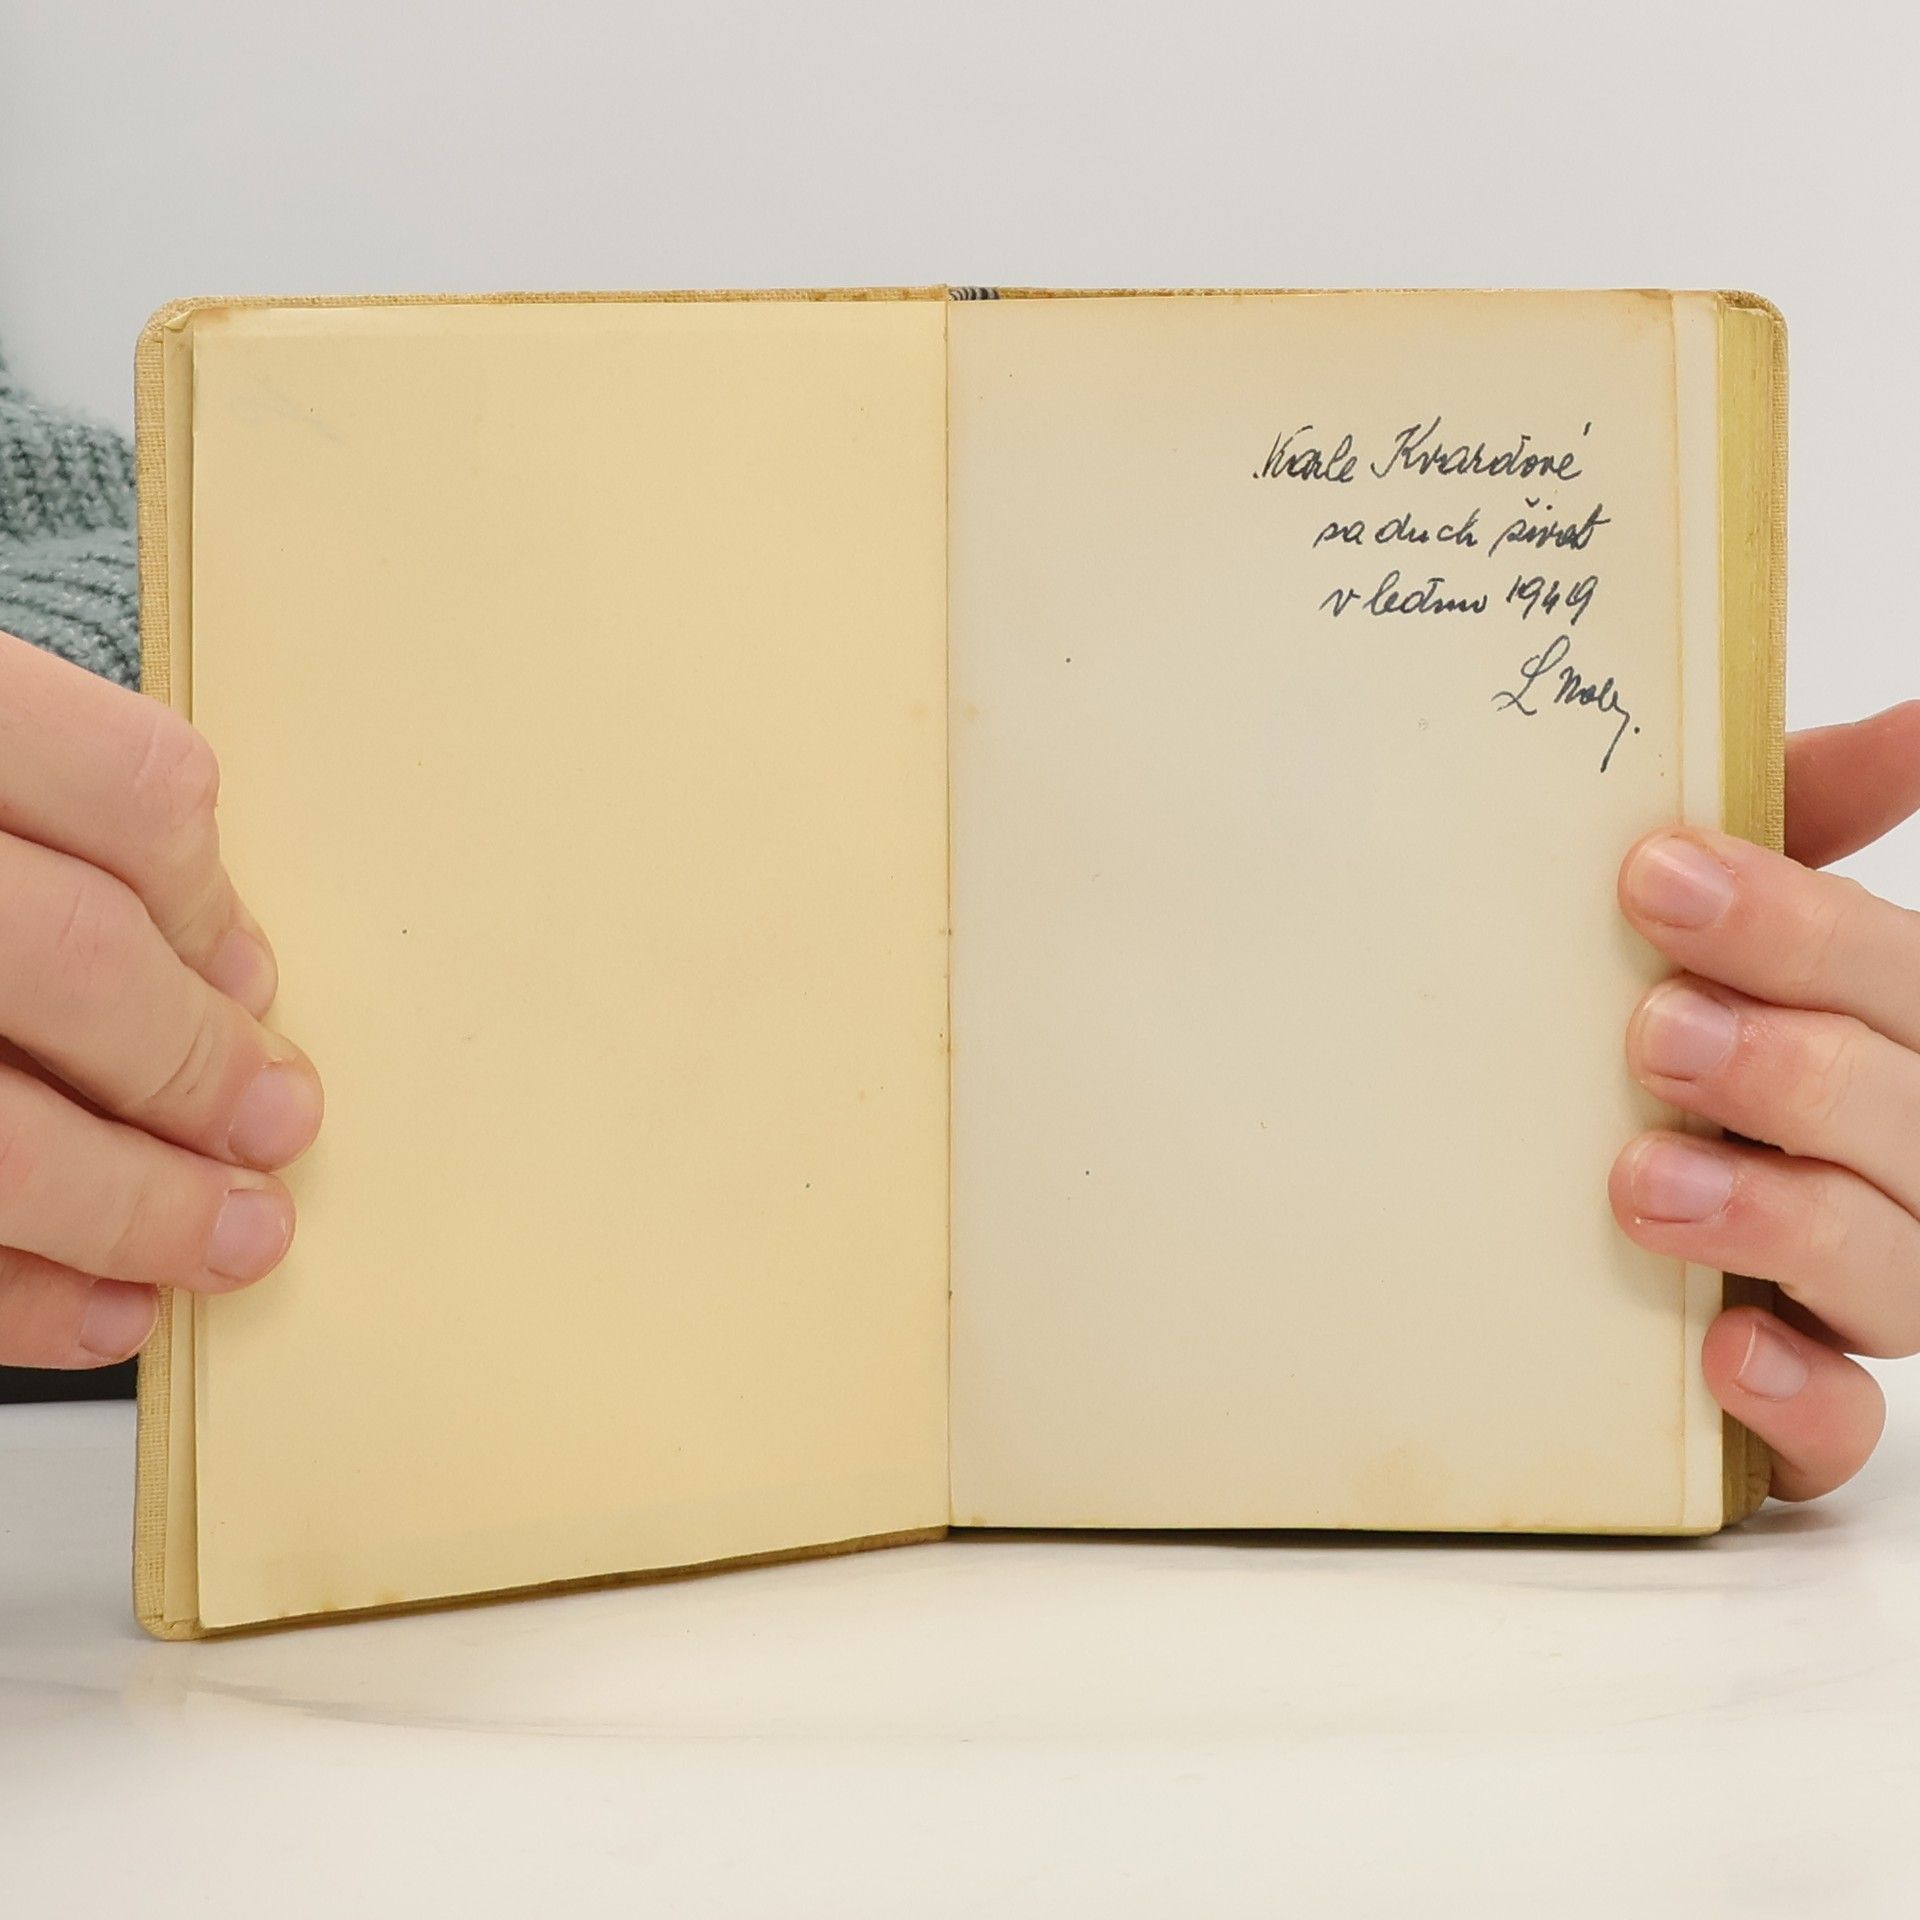 Karle Kvardové
na duch život
v lednu 1949
L Noly.